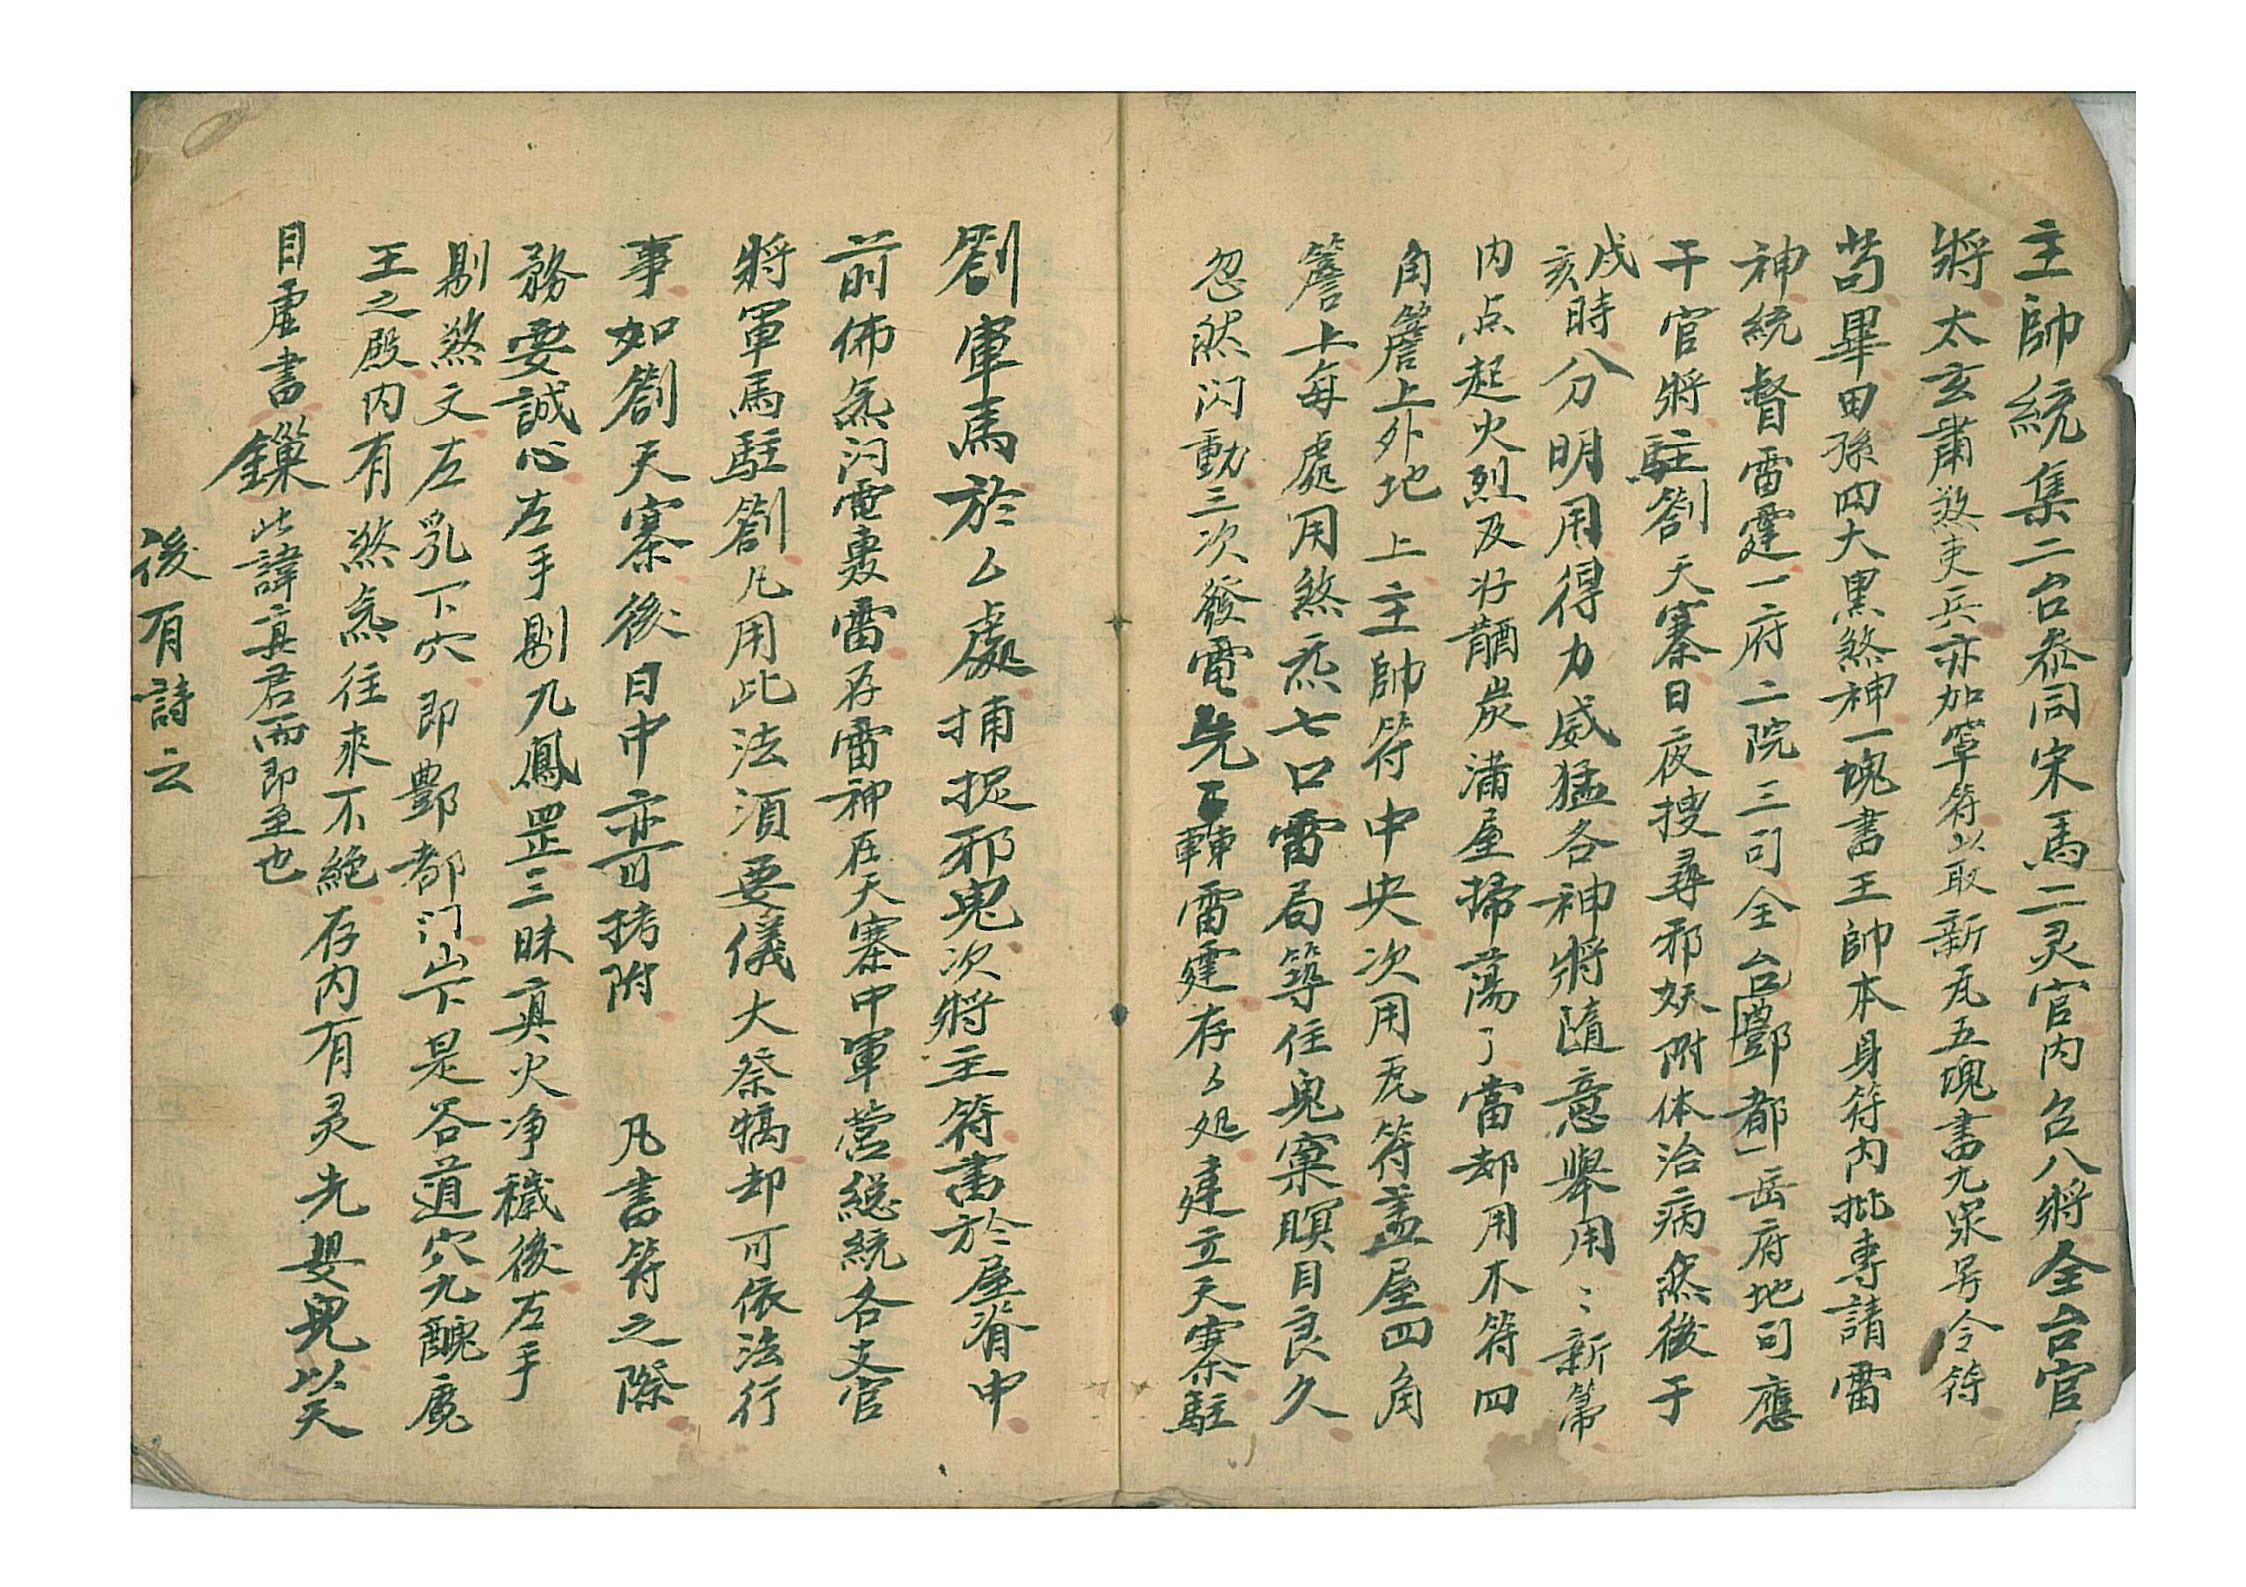 主帥統集二台叅同宋馬二灵官内召八将全台官
將太玄肅煞吏兵亦加窜符以取新瓦五塊書九泉号令符
苟畢田孫四大黑煞神一塊書王帥本身符内批専請雷
神統督雷霆一府二院三司全台酆都岳府地司應
干官將駐劄天寨日夜搜尋邪妖附体治病然後于
戌亥時分明用得力威猛各神將隨意舉用:新箒
内点起火烈及将醋炭滿屋掃蕩了當却用木符四
角簷上外地上主帥符中央次用瓦符盖屋四角
簷上每處用煞炁七口雷局等住鬼窠瞑目良久
忽然闪動三次發電先轟雷霆存厶处建立天寨駐
劄軍馬於厶處捕捉邪鬼次將主符書於屋脊中
前佈炁闪電轰雷存雷神在天寨中軍营総統各支官
將軍馬駐劄凡用此法湏要儀大祭犒却可依法行
事如劄天寨後日中亦可拷附 凡書符之際
務要誠心左手剔九鳳罡三昧真火净穢後左手
剔煞文左乳下穴即酆都门山下是谷道穴九醜魔
王之殿内有煞炁往來不絶存内有灵光嬰兒以天
目虛書鏁此諱真君而即至也
後有詩云